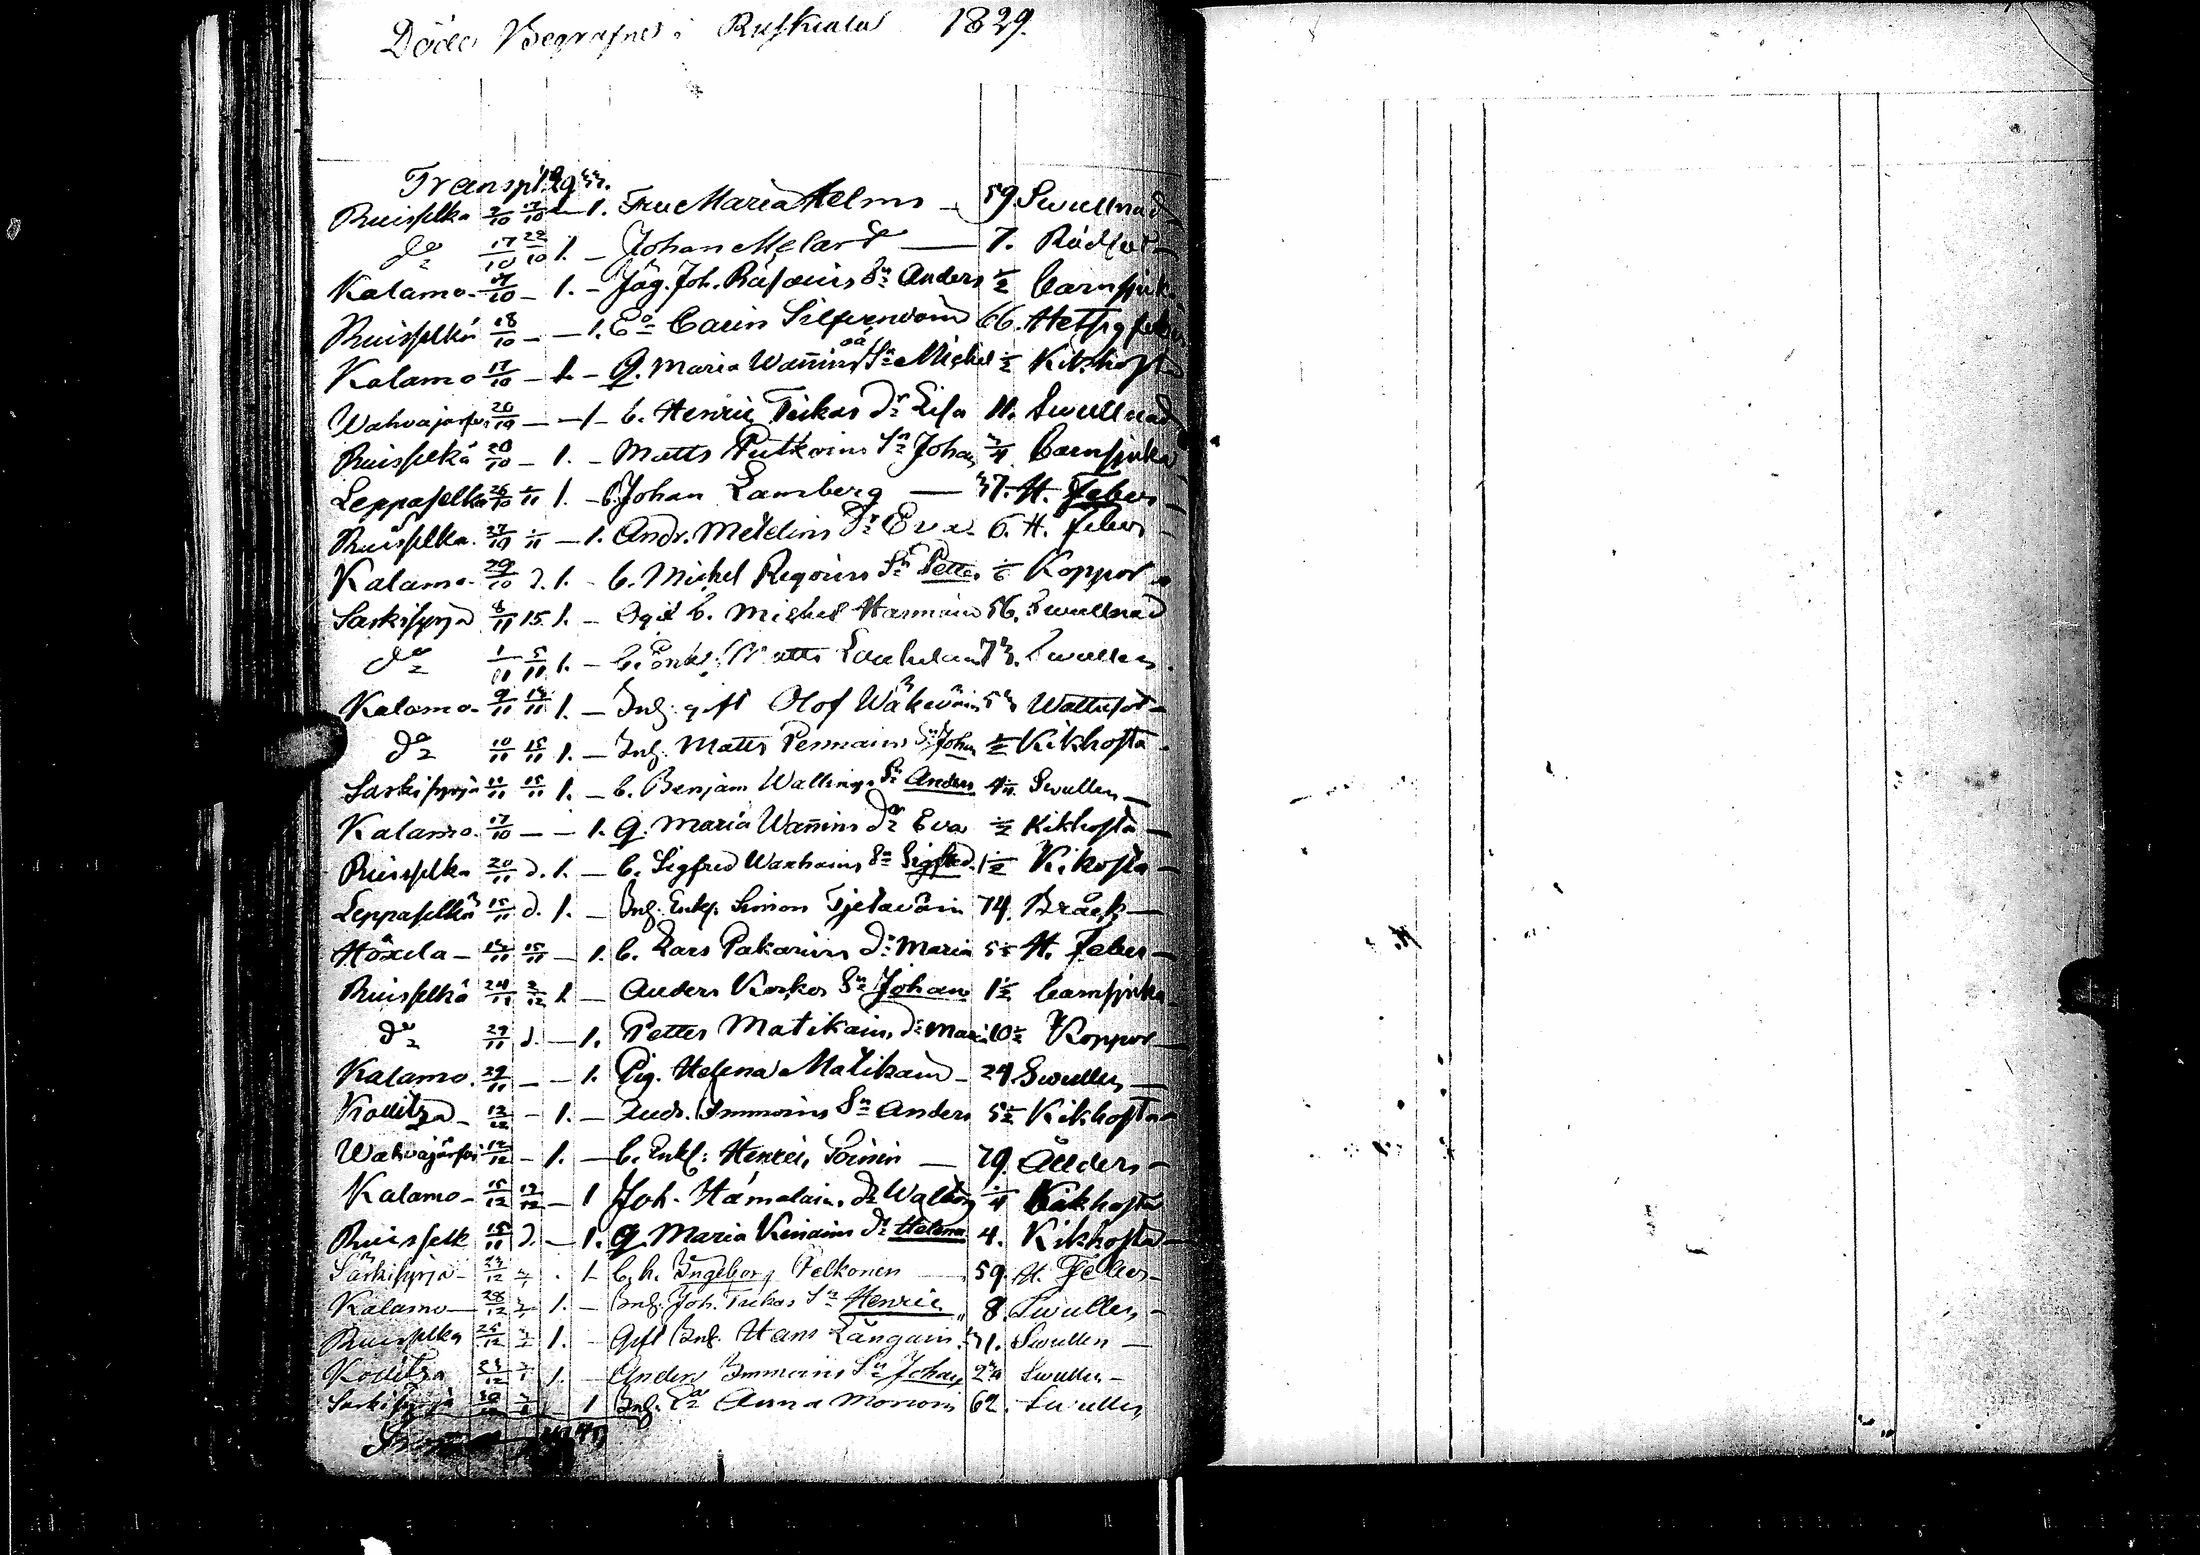 Döde Begrafne i Ruskiala 1829.
Transp.
Ruisselka 9/10 17/10 - 1. Fru Maria Helms - 59. Swullnad
do 17/10 22/10 1. - Johan Melart - 7. Rödsot -
Kalamo - /10 - 1. - Jäg. Joh. Räsains Sn Anders 1/2 barnsjuk
Ruisselkä 18/10 - - 1. Eo Carin 66. Hetsig feber
Kalamo 17/10 - 1. - q. Maria Wan̄ins oä Sn Michel 1/2 Kikhosta
Wahvajärfvi 26/10 - - 1 - b. Henric Tiikas dr Lisa 11. Swullnad
Ruisselkä 20/10 - 1. - Matts Putkoins Sn Johan 3/4 barnsjuka
Leppaselka 26/10 1/11 1. - b. Johan Lamberg - 37. H. Feber -
Ruisselka. 27/10 1/11 - 1. Andr. Meldins dr Eva 6. H. feber -
Kalamo - 29/10 d. 1. - b. Michel Regoins Sn Petter 1/6 Koppor
Sarkisyrja 8/11 15 1. - Ogift b. Michel Harmain 56. Swullnad
do 1/11 5/11 1. - b. Enkl. Matts 73. Swullen.
Kalamo - 9/11 15/11 1. - Inh. gift Olof Wäkeväin 53 Wattusot -
do 10/11 15/11 1. - Inh. Matts Pennains Sn Johan 1/2 Kikhosta -
Sarkisyrjä 11/11 15/11 1. - b. Benjam Wallings Sn Anders 4 1/4. Swullen -
Kalamo. 17/10 - - 1. q. Maria Wan̄ins dr Eva 1/2 Kikhosta -
Ruisselka 20/11 d. 1. - b. Sigfred Warhains Sn Sigfred. 1 1/2 Kikosta -
Leppaselkä 15/11 d. 1. - Inh. Enkl. Simon Tjelaväin 74. Bråck -
Höxela - 12/11 15/11 - 1. b. Lars Pakarins dr Maria 5 1/2 H. Feber -
Ruisselkä 24/11 2/12 1 - Anders Koskos Sn Johan 1 1/2 barnsjuka
do 29/11 d. - 1. Petter Matikains dr Maria 10 1/2 Koppor -
Kalamo. 29/11 - - 1. Pig. Helena Matikain - 24 Swullen -
Koilitza - 12/12 - 1. - Andr. Immoins Sn Anders 5 1/2 Kikhosta
Wahvajärfvi 12/12 - 1. - b. Enkl: Henric Toinin - 79. Ålders -
Kalamo - 15/12 19/12 - 1 Joh. Hämalains dr Walborg 1/4 Kikhosta
Ruisselk 15/11 d. - 1. q. Maria Kinains dr Helena 4. Kikhosta -
Särkisyrjä - 23/12 - 1 b. h. Ingeborg Pelkonen - 59. H. Feber -
Kalamo - 28/12 1. - Inh. Joh. Tiikas Sn Henric 8. Swullen -
Ruisselka 25/12 1. - Gift Inh. Hans Längain. 31. Swullen -
Koilitza 23/12 1. - Anders Immoins Sn Johan 2 3/4 Swullen -
Sarkisyrjä 1 Inh. Anna Moroin 62. Swullen
Summa